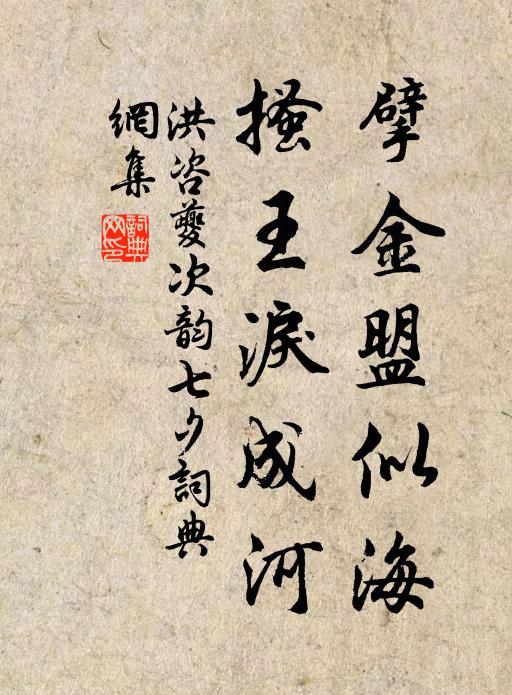 擘金盟似海
搔王淚成河
洪咨夔次韵七夕詞典
網集
詞典網印